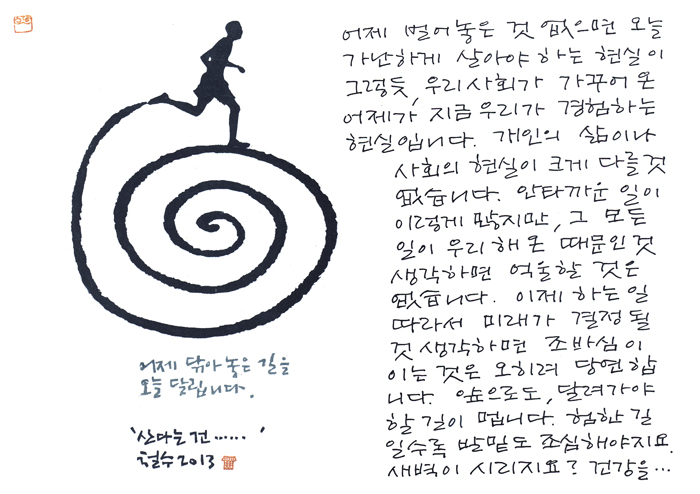 어제 벌어놓은 것 없으면 오늘
가난하게 살아야 하는 현실이
그렇듯, 우리사회가 가꾸어 온
어제가 지금 우리가 경험하는
현실입니다. 개인의 삶이나
사회의 현실이 크게 다를 것
없습니다. 안타까운 일이
이렇게 많지만, 그 모든
일이 우리 해 온 때문인 것
생각하면 억울할 것은
없습니다. 이제 하는 일
따라서 미래가 결정 될
것 생각하면 조바심이
이는 것은 오히려 당연합
니다. 앞으로도, 달려가야
할 길이 멉니다. 험한 길
일수록 발밑도 조심해야지요.
새벽이 시리지요? 건강을…
어제 닦아 놓은 길을
오늘 달립니다.
'산다는 건……'
철수 2013